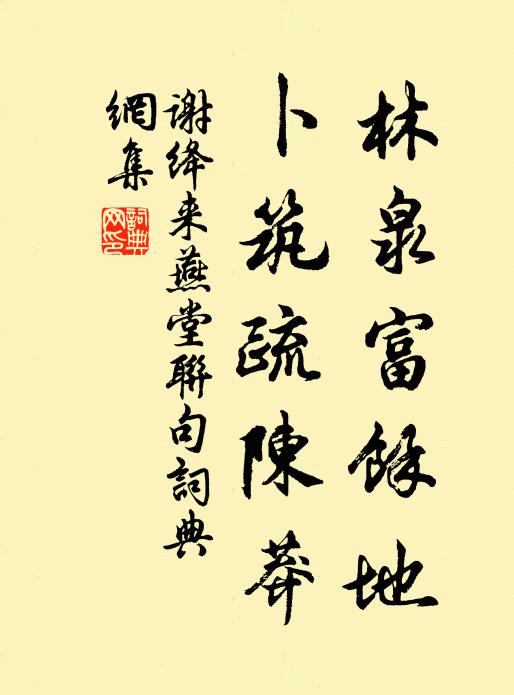 林泉富餘地
卜筑疏陳莽
谢绛来燕堂聯句詞典
網集
詞典
网印